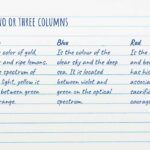 WO OR THREE COLUMNS
color of gold,
and ripe lemons.
spectrum of
light, yellow is
between green
range.
Blue
Is the colour of the
clear sky and the deep
sea. It is located
between violet and
green on the optical
spectrum.
Red
Is the
associa
sacrific
courag